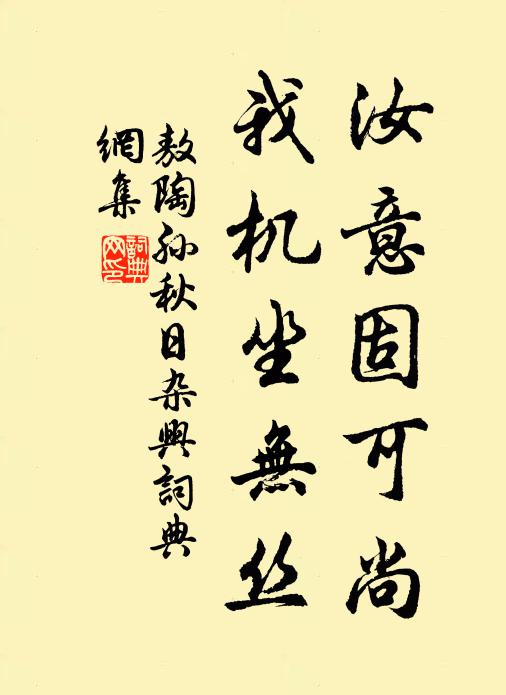 汝意固可尚
我机坐無丝
敖陶孙秋日杂興詞典
網集
詞典网印